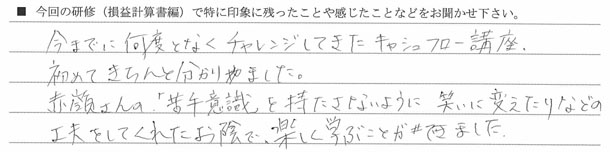 ■ 今回の研修（損益計算書編）で特に印象に残ったことや感じたことなどをお聞かせ下さい。
今までに何度となくチャレンジしてきたキャッシュフロー講座、
初めてきちんと分かりました。
赤顔さんの「苦手意識」を持たさないように笑いに変えたりなどの
工夫をしてくれたお陰で、楽しく学ぶことができました。